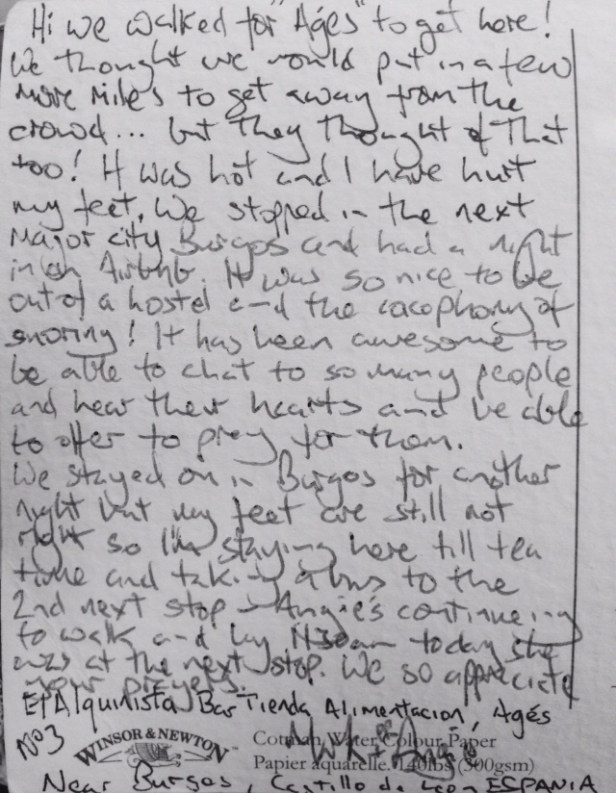 Hi we walked for "Ages" to get here!
We thought we would put in a few
more miles to get away from the
crowd... but they thought of that
too! It was hot and I have hurt
my feet. We stopped in the next
Major city Burgos and had a night
in an Airbnb. It was so nice to be
out of a hostel and the cacophony of
snoring! It has been awesome to
be able to chat to so many people
and hear their hearts and be able
to offer to pray for them.
We stayed on in Burgos for another
night but my feet are still not
right so I'm staying here till tea
time and taking a bus to the
2nd next stop - Angie's continuing
to walk and by today she
was at the next stop. We so appreciate
your prayers.
El Alquinista Bar Tienda Alimentacion, Agés
Nº3
WINSOR & NEWTON™
Cotman Water Colour Paper
Papier aquarelle. 140lbs (300gsm)
Near Burgos, Castillo de Leon ESPANIA